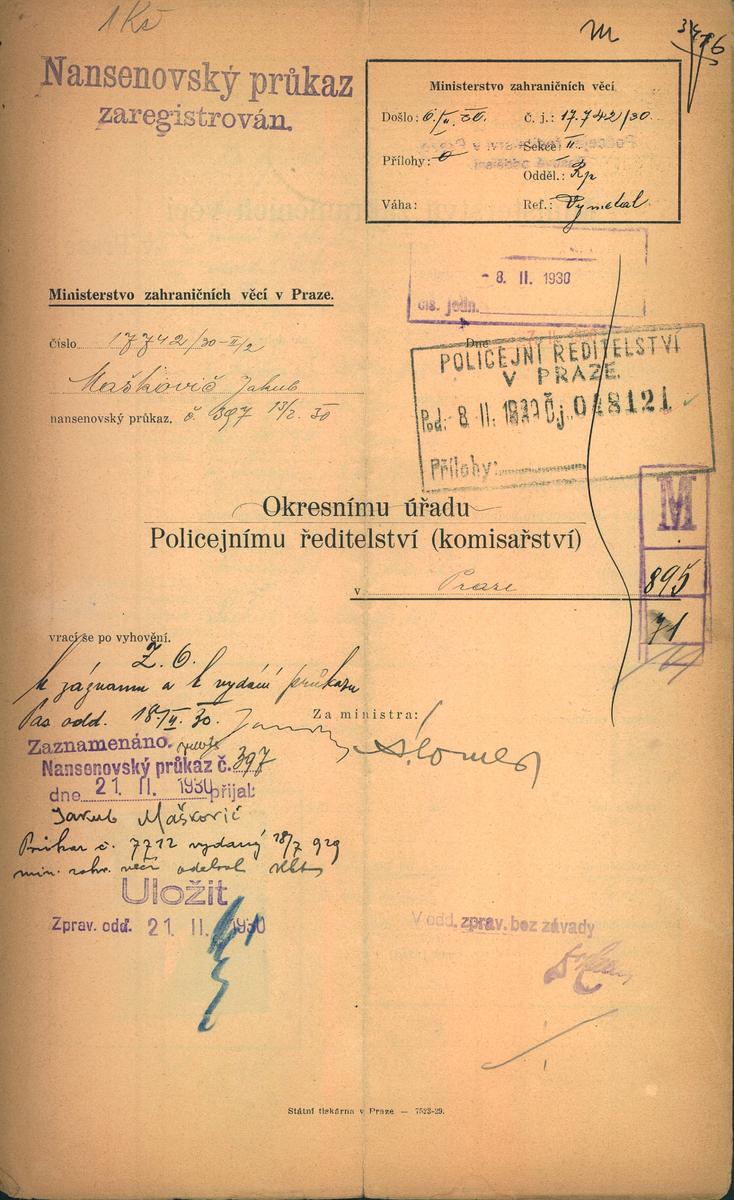 1 Kč
m
3476
Nansenovský průkaz
zaregistrován.
Ministerstvo zahraničních věcí
Došlo: 6/II. 30. Č. j.: 17.742/30
Sekce II.
Přílohy: 0
Odděl.: Rp
Váha: Ref.: Vymetal
- 8. II. 1930
čís. jedn.
Ministerstvo zahraničních věcí v Praze.
Číslo 17742/30-II/2
Dne
Maškovič Jakub
nansenovský průkaz. č. 397 13/2. 30
POLICEJNÍ ŘEDITELSTVÍ
V PRAZE.
Pod: - 8. II. 1930 Čj. 018121
Přílohy:
M
895
71
Okresnímu úřadu
Policejnímu ředitelství (komisařství)
v Praze
vrací se po vyhovění.
Z. O.
k záznamu a k vydání průkazu
Pas odd. 18/II. 30.
Za ministra:
Zaznamenáno.
Nansenovský průkaz č. 397
dne 21. II. 1930 přijal:
Jakub Maškovič
Průkaz č. 7712 vydaný 18/7 929
min. zahr. věcí odebral
Uložit
Zprav. odd. 21. II. 1930
V odd. zprav. bez závady
Státní tiskárna v Praze — 7523-29.